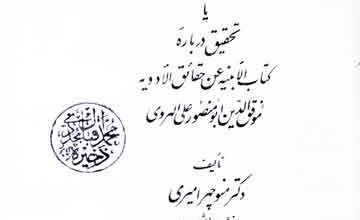 یا
تحقیق درباره
کتاب الأبنیه عن حقائق الأدویه
موفق الدین ابو منصور علی الهروی
تألیف
دکتر منوچهر امیری
ذخیره
محمد اقبال مجددی